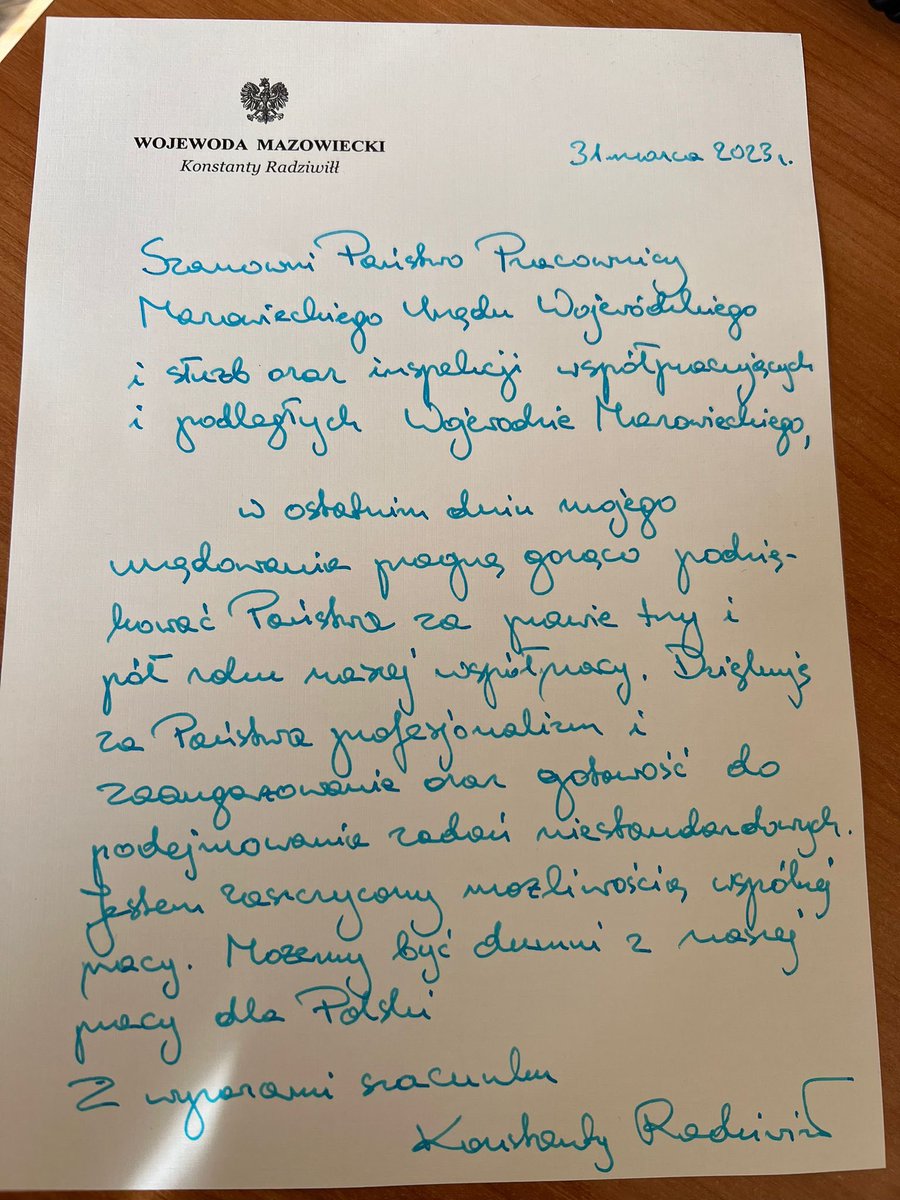 WOJEWODA MAZOWIECKI
Konstanty Radziwiłł
31 marca 2023 r.
Szanowni Państwo Pracownicy
Mazowieckiego Urzędu Wojewódzkiego
i służb oraz inspekcji współpracujących
i podległych Wojewodzie Mazowieckiego,
w ostatnim dniu mojego
urzędowania pragnę gorąco podzię-
kować Państwu za prawie trzy i
pół roku naszej współpracy. Dziękuję
za Państwa profesjonalizm i
zaangażowanie oraz gotowość do
podejmowania zadań niestandardowych.
Jestem zaszczycony możliwością wspólnej
pracy. Możemy być dumni z naszej
pracy dla Polski
Z wyrazami szacunku
Konstanty Radziwiłł